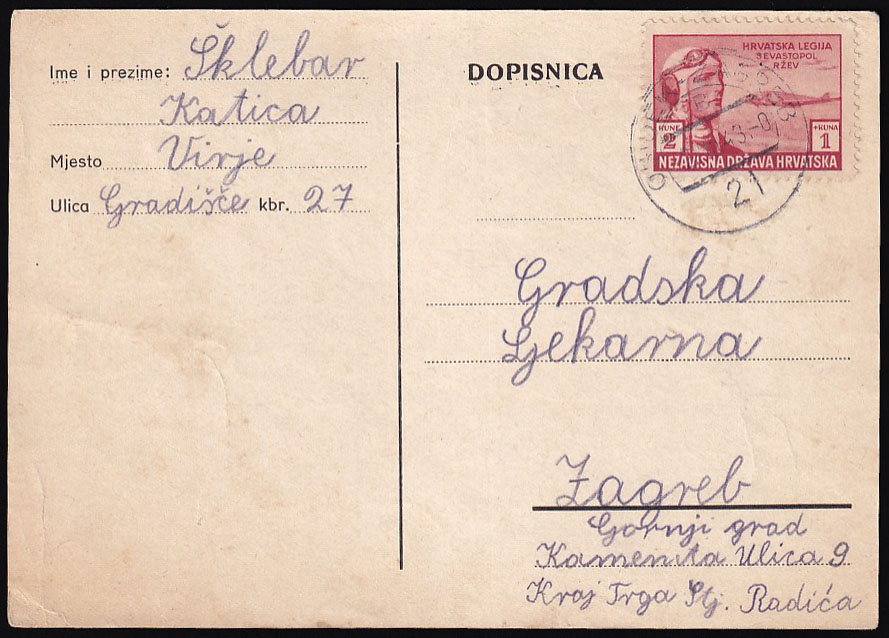 Ime i prezime: Šklebar
Katica
Mjesto Virje
Ulica Gradišče kbr. 27
DOPISNICA
HRVATSKA LEGIJA
SEVASTOPOL
RŽEV
KUNE
2
+KUNA
1
NEZAVISNA DRŽAVA HRVATSKA
21
Gradska
Ljekarna
Zagreb
Gornji grad
Kamenita Ulica 9
Kraj Trga Stj. Radića